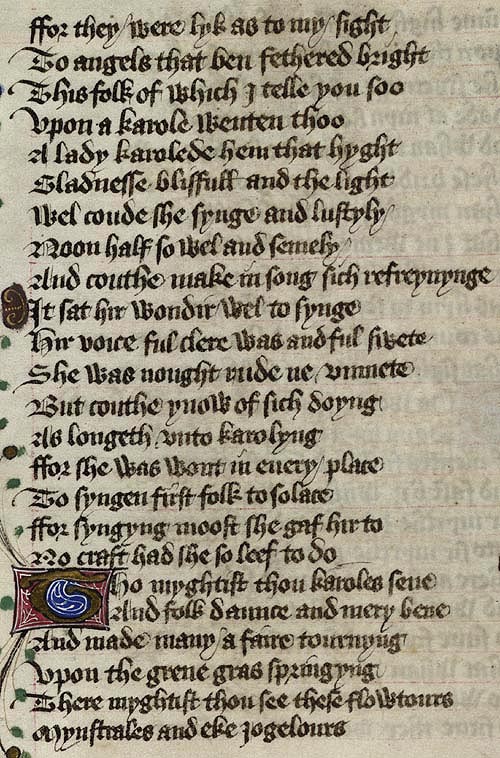 ffor they were lyk as to my sight
To angels that ben fethered bright
This folk of which I telle you soo
Vpon a karole wenten thoo
A lady karolede hem that hyght
Gladnesse blisfull and the light
Wel coude she synge and lustyly
Noon half so wel and semely
And couthe make in song sich refreynynge
It sat hir wondir wel to synge
Hir voice ful clere was and ful swete
She was nought rude ne vnmete
But couthe ynow of sich doyng
As longeth vnto karolyng
ffor she was wont in euery place
To syngen first folk to solace
ffor syngyng moost she gaf hir to
No craft had she so leef to do
Tho myghtist thou karoles sene
And folk daunce and mery bene
And made many a faire tournyng
Vpon the grene gras springyng
There myghtist thou see these flowtours
Mynstrales and eke jogelours